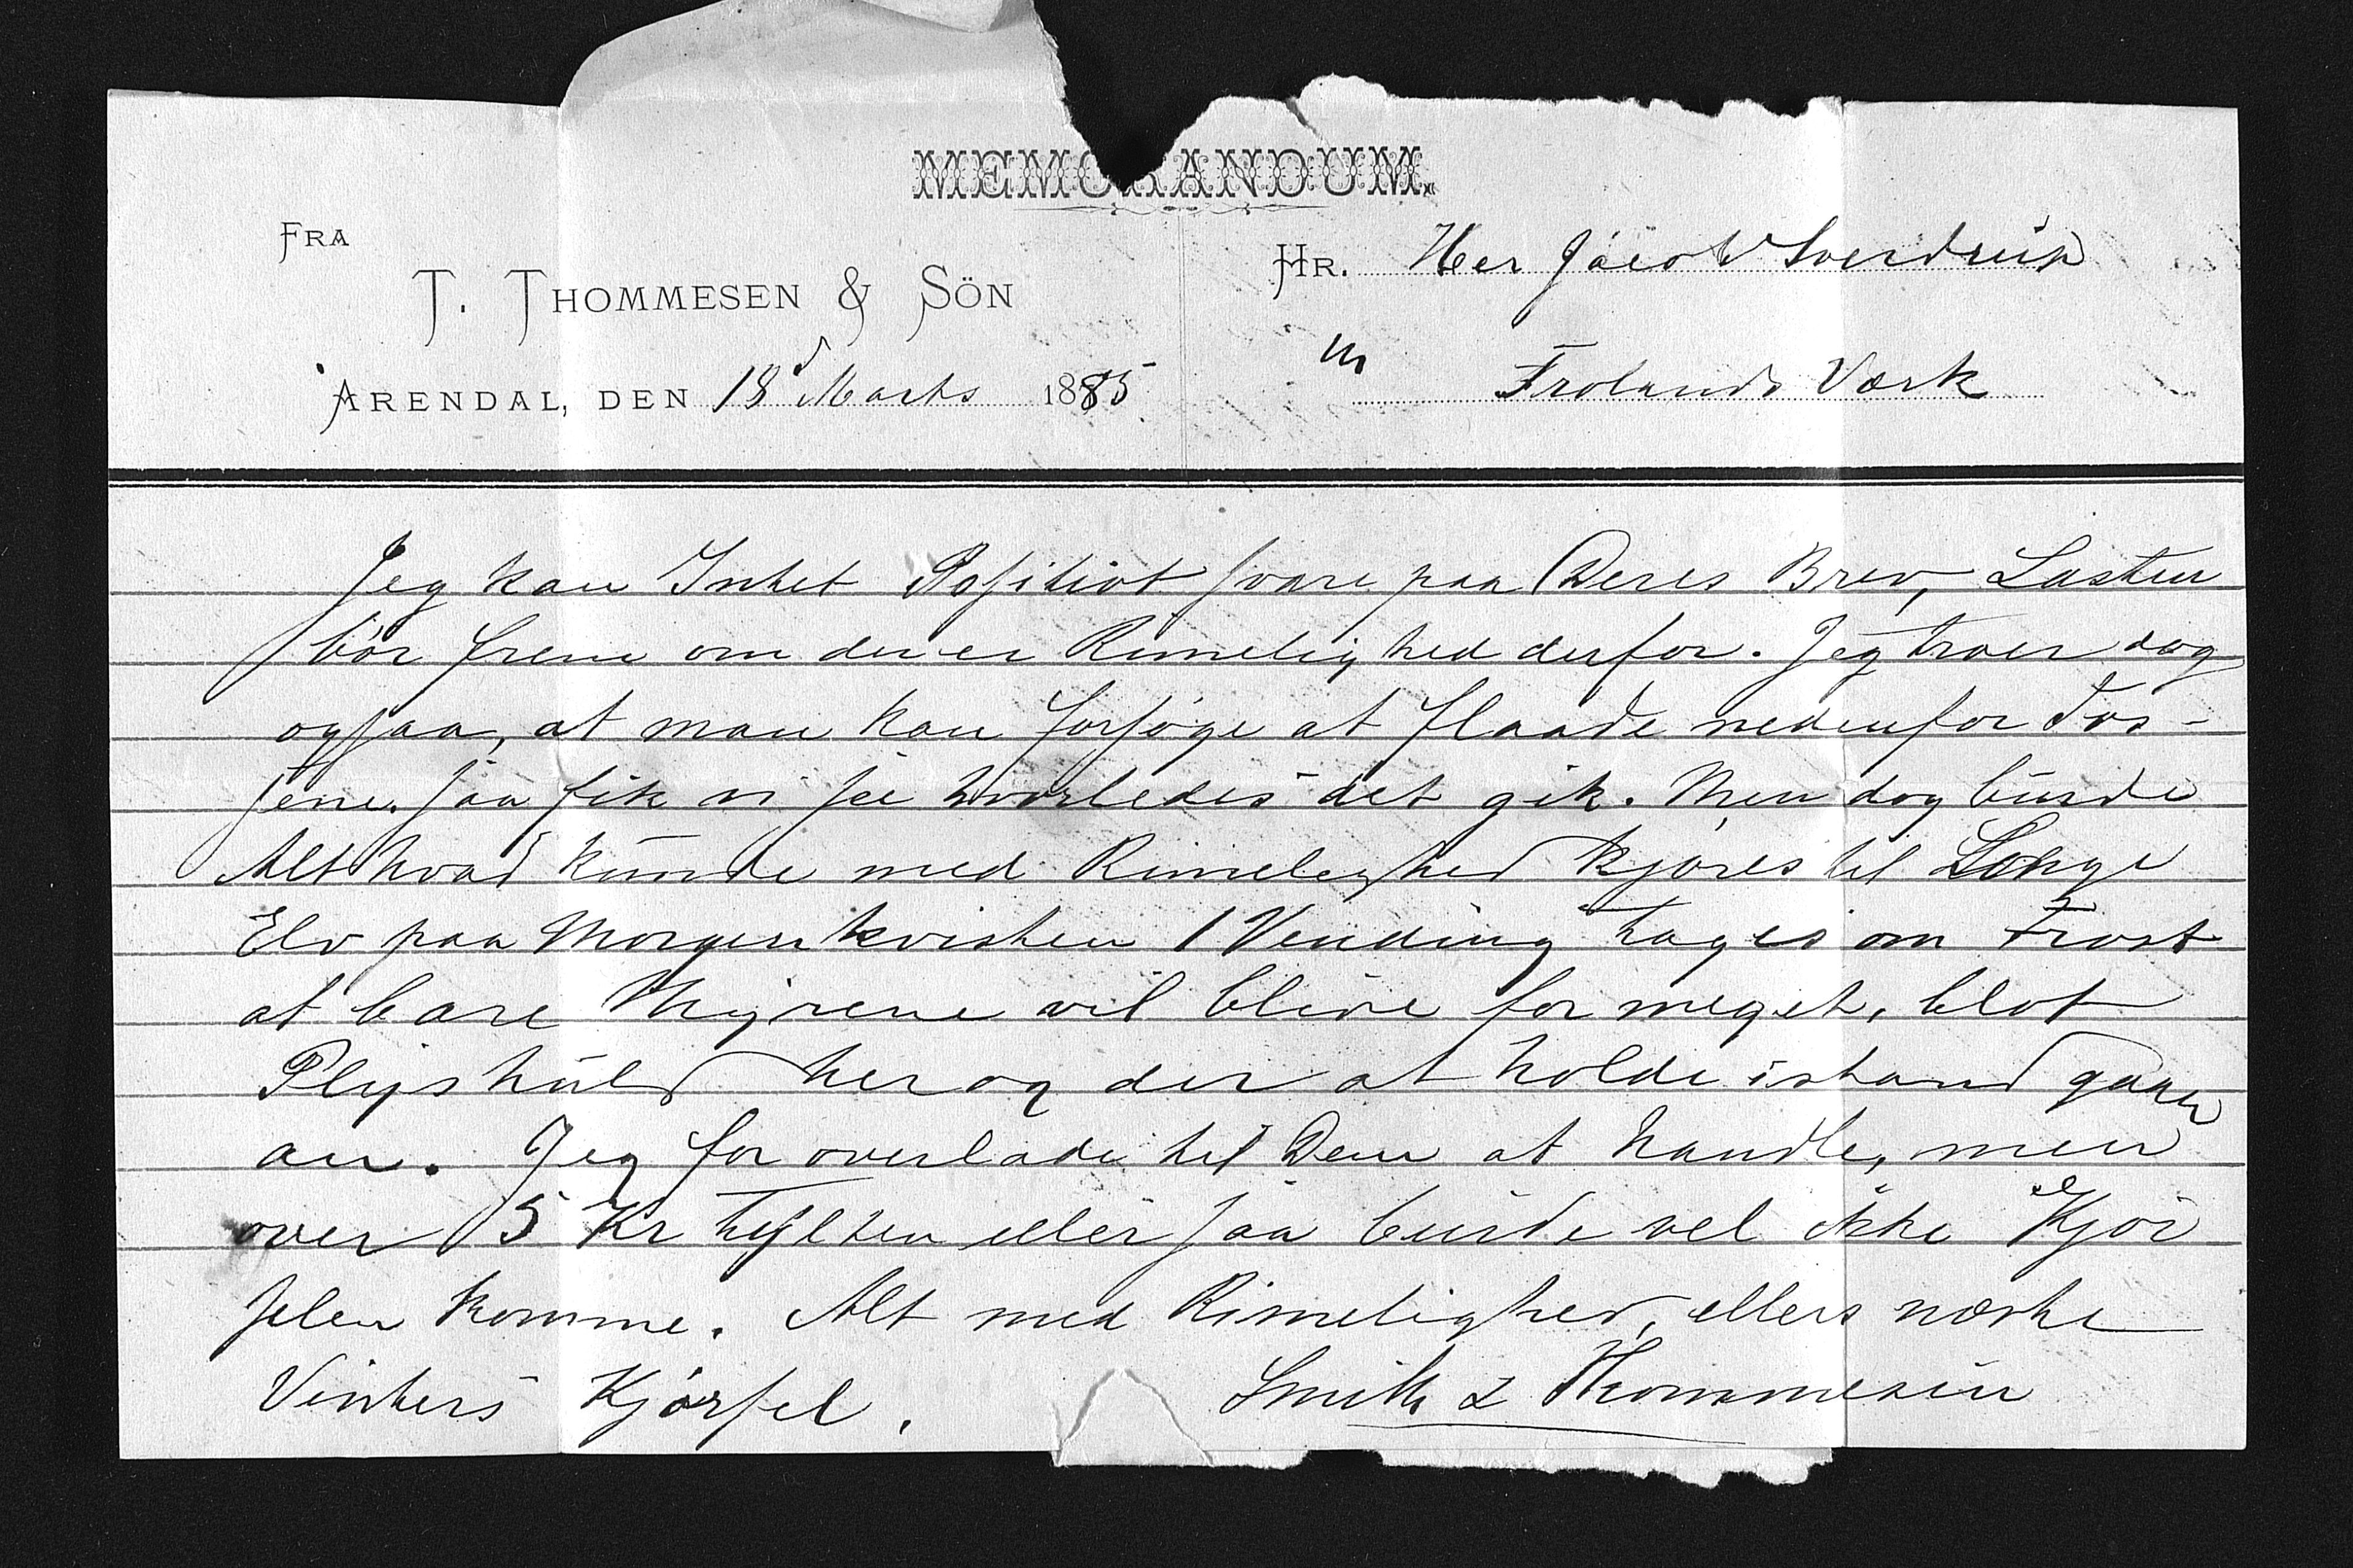 MEMORANDUM.
FRA
T. THOMMESEN & SÖN
ARENDAL, DEN 18d Marts 1885
HR. Her Jacob Sverdrup
Frolands Værk
Jeg kan Intet Positivt svare paa Deres Brev, Lasten
bör frem om der er Rimelighed derfor. Jeg troer dog
ogsaa, at man kan forsöge at flaade nedenfor Fos-
sene. saa fik vi see hvorledes det gik. Men dog burde
Alt hvad kunde med Rimelighed kjöres til Songe
Elv paa Morgenkvisten 1 Vending tages om Frost
at bare Myrene vil blive for meget, blot
her og der at holde istand gaaer
an. Jeg for overlade til Dem at handle, men
over 5 Kr Tylten eller saa burde vel ikke Kjör
selen komme. Alt med Rimelighed, ellers næste
Vinters Kjörsel.
Smith & Thommesen